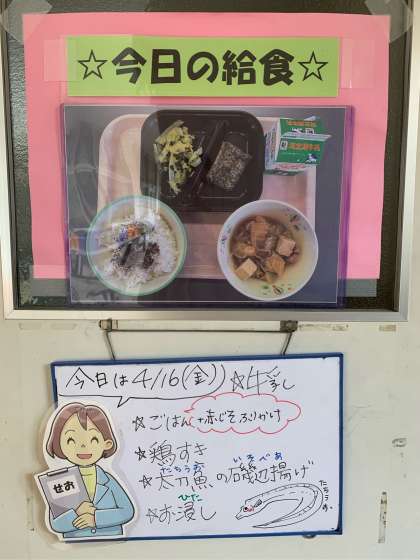 ☆今日の給食☆
今日は4/16(金)
☆牛乳
☆ごはん +赤じそふりかけ
☆鶏すき
たちうお いそべあ
☆太刀魚の磯辺揚げ
ひた
☆お浸し
たちうお
せお